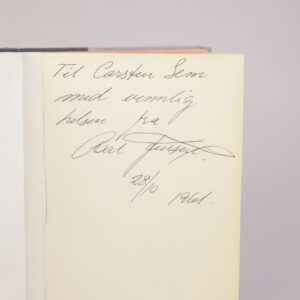 Til Carsten Sem
med vennlig
hilsen fra
28/10 1961.